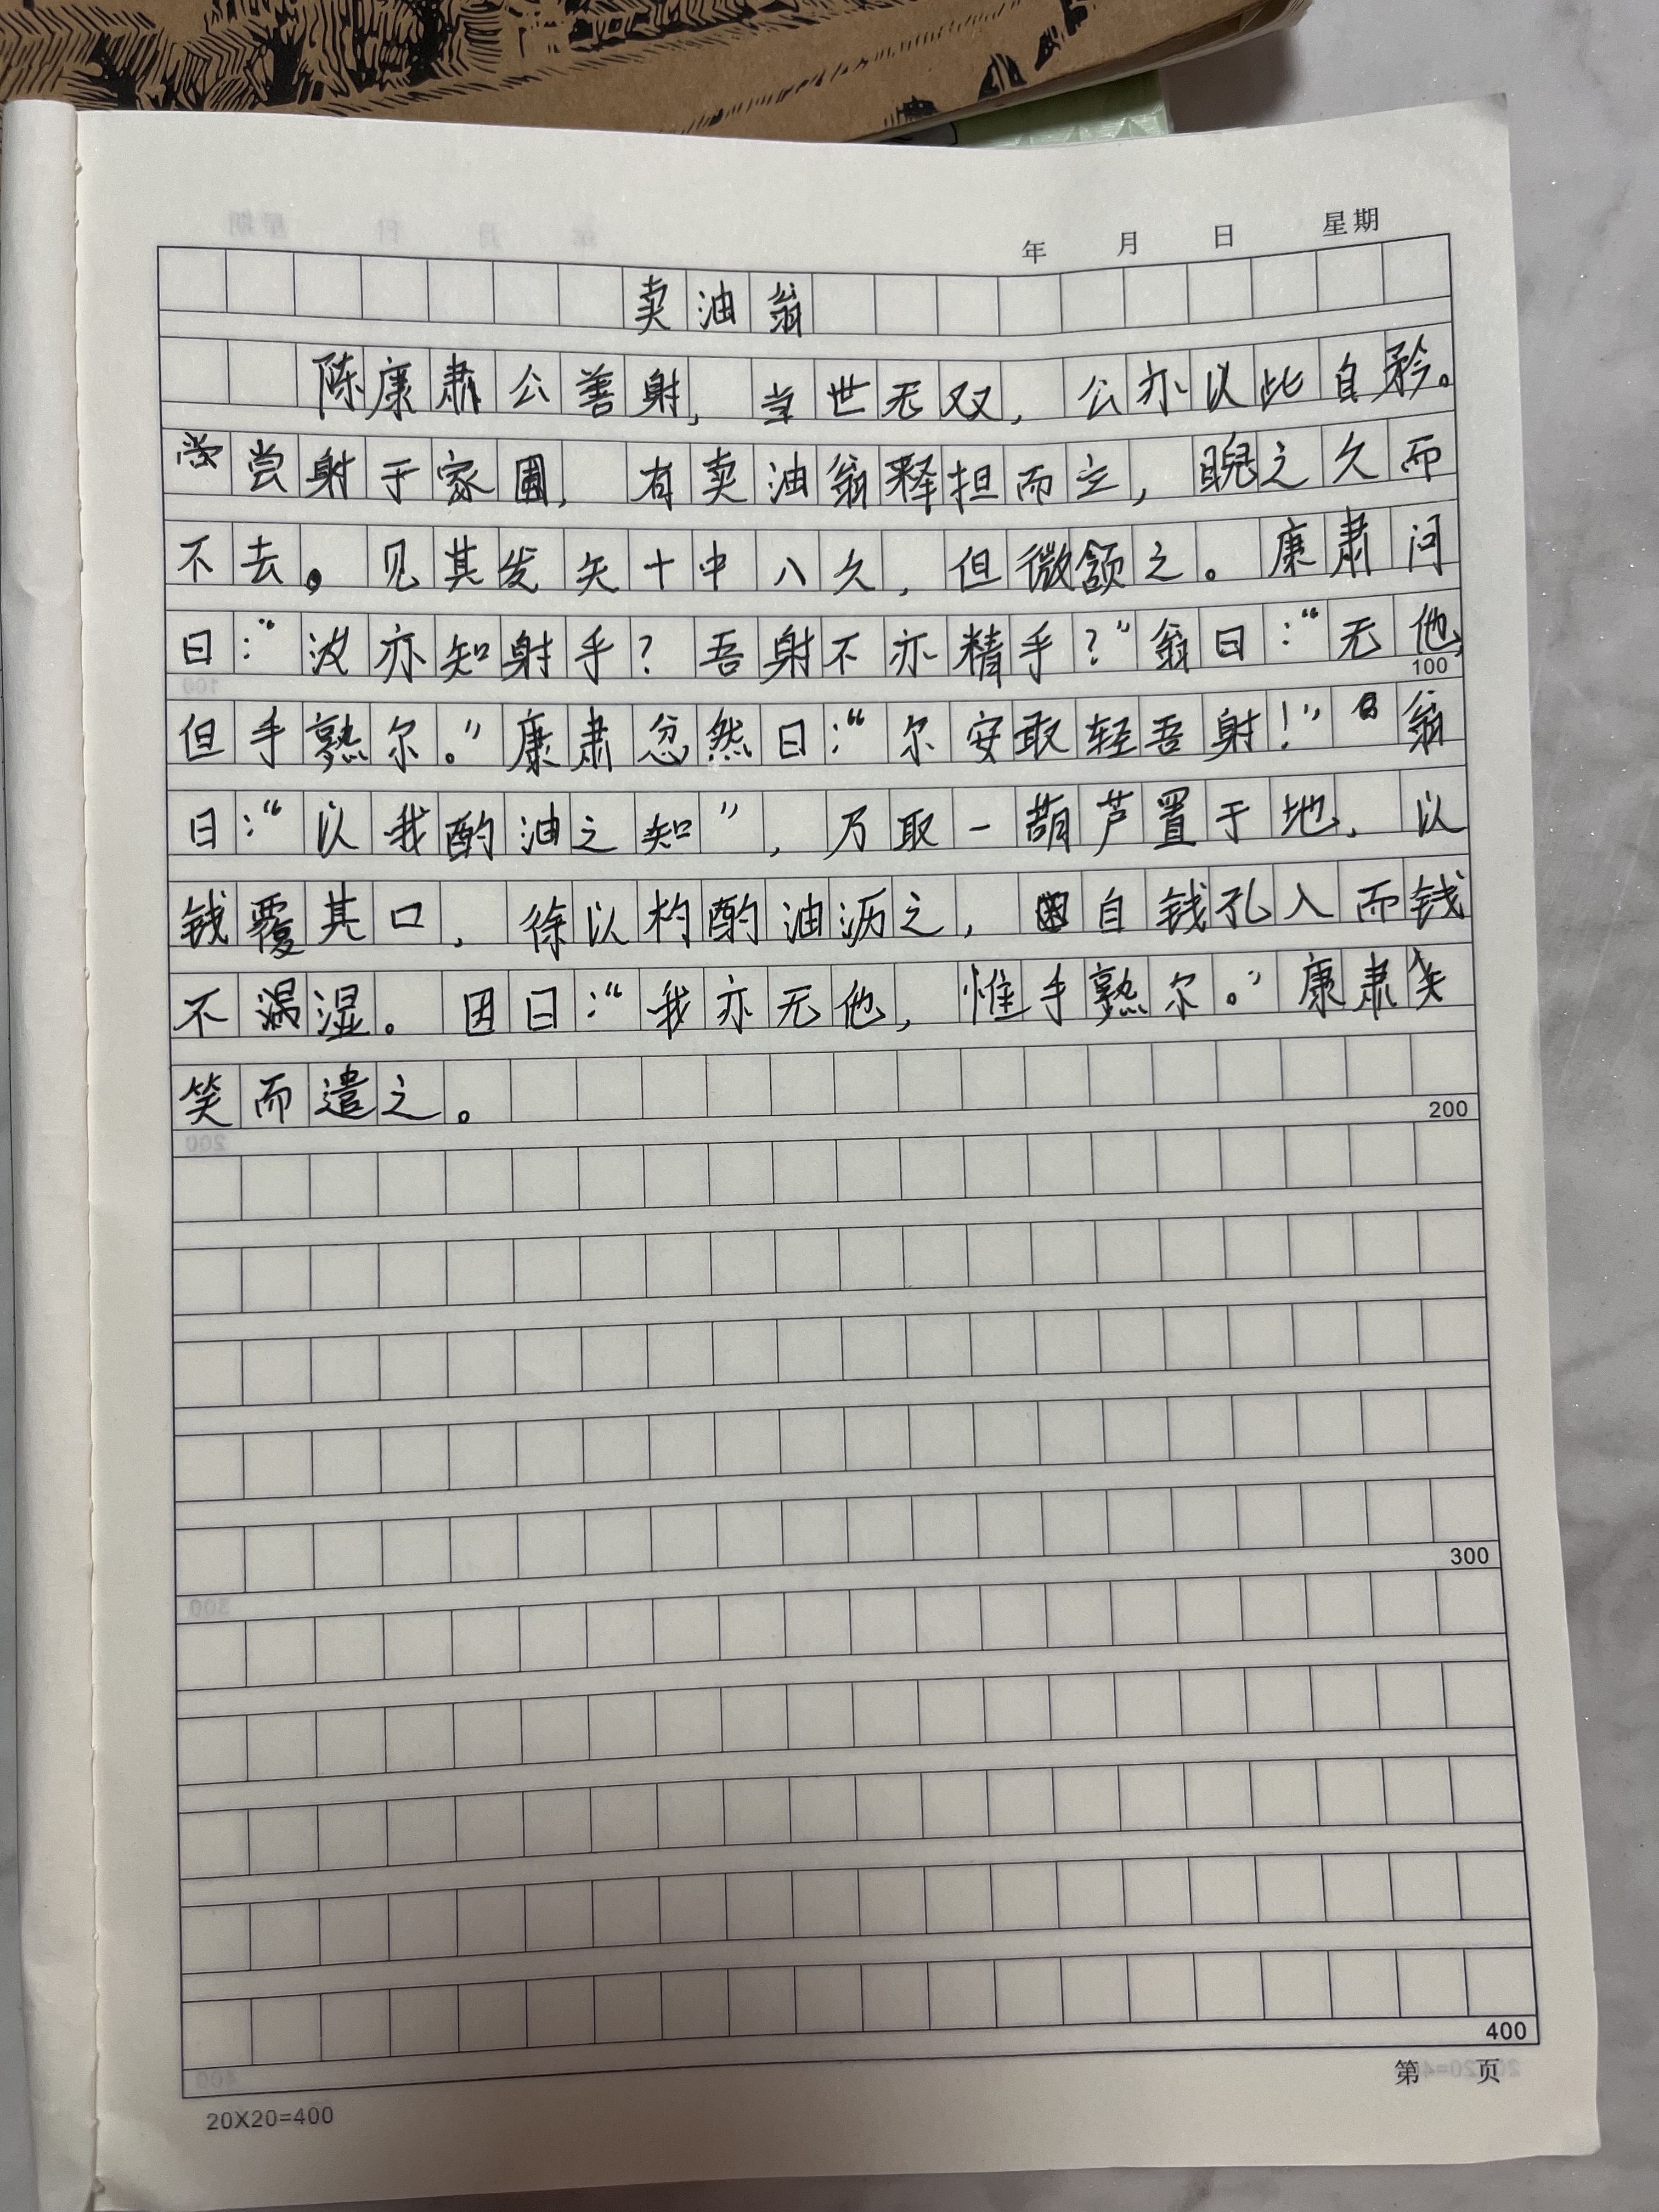 年 月 日 星期
卖油翁
陈康肃公善射，当世无双，公亦以此自矜。
尝尝射于家圃，有卖油翁释担而立，睨之久而
不去。见其发矢十中八久，但微颔之。康肃问
曰：“汝亦知射乎？吾射不亦精乎？”翁曰：“无他，
但手熟尔。”康肃忿然曰：“尔安敢轻吾射！”翁
曰：“以我酌油之知”，乃取一葫芦置于地，以
钱覆其口，徐以杓酌油沥之，自钱孔入而钱
不湿。因曰：“我亦无他，惟手熟尔。”康肃
笑而遣之。
100
200
300
400
第 页
20X20=400